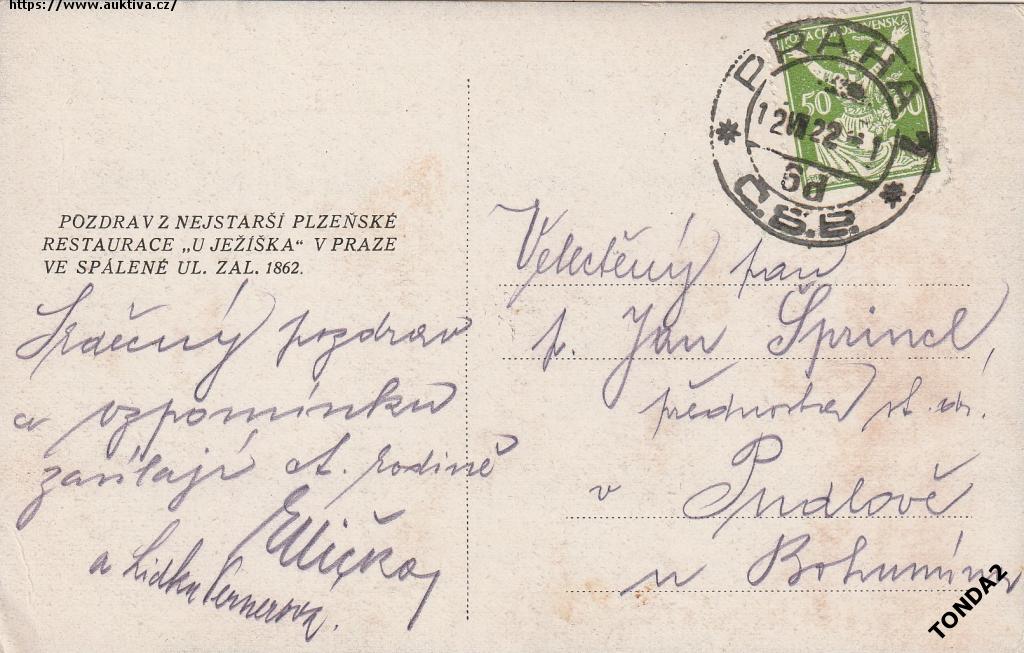 https://www.auktiva.cz/
POŠTA ČESKOSLOVENSKÁ
50
PRAHA 1
12 VII 22 - 1
6d
Č.S.P.
POZDRAV Z NEJSTARŠÍ PLZEŇSKÉ
RESTAURACE „U JEŽÍŠKA“ V PRAZE
VE SPÁLENÉ UL. ZAL. 1862.
Srdečný pozdrav
a vzpomínku
zasílají ct. rodině
Elička
a Lidka Pernerova.
Velectěný pan
p. Jan Šprincl,
přednosta st. dr.
v Pudlově
u Bohumína
TONDA2